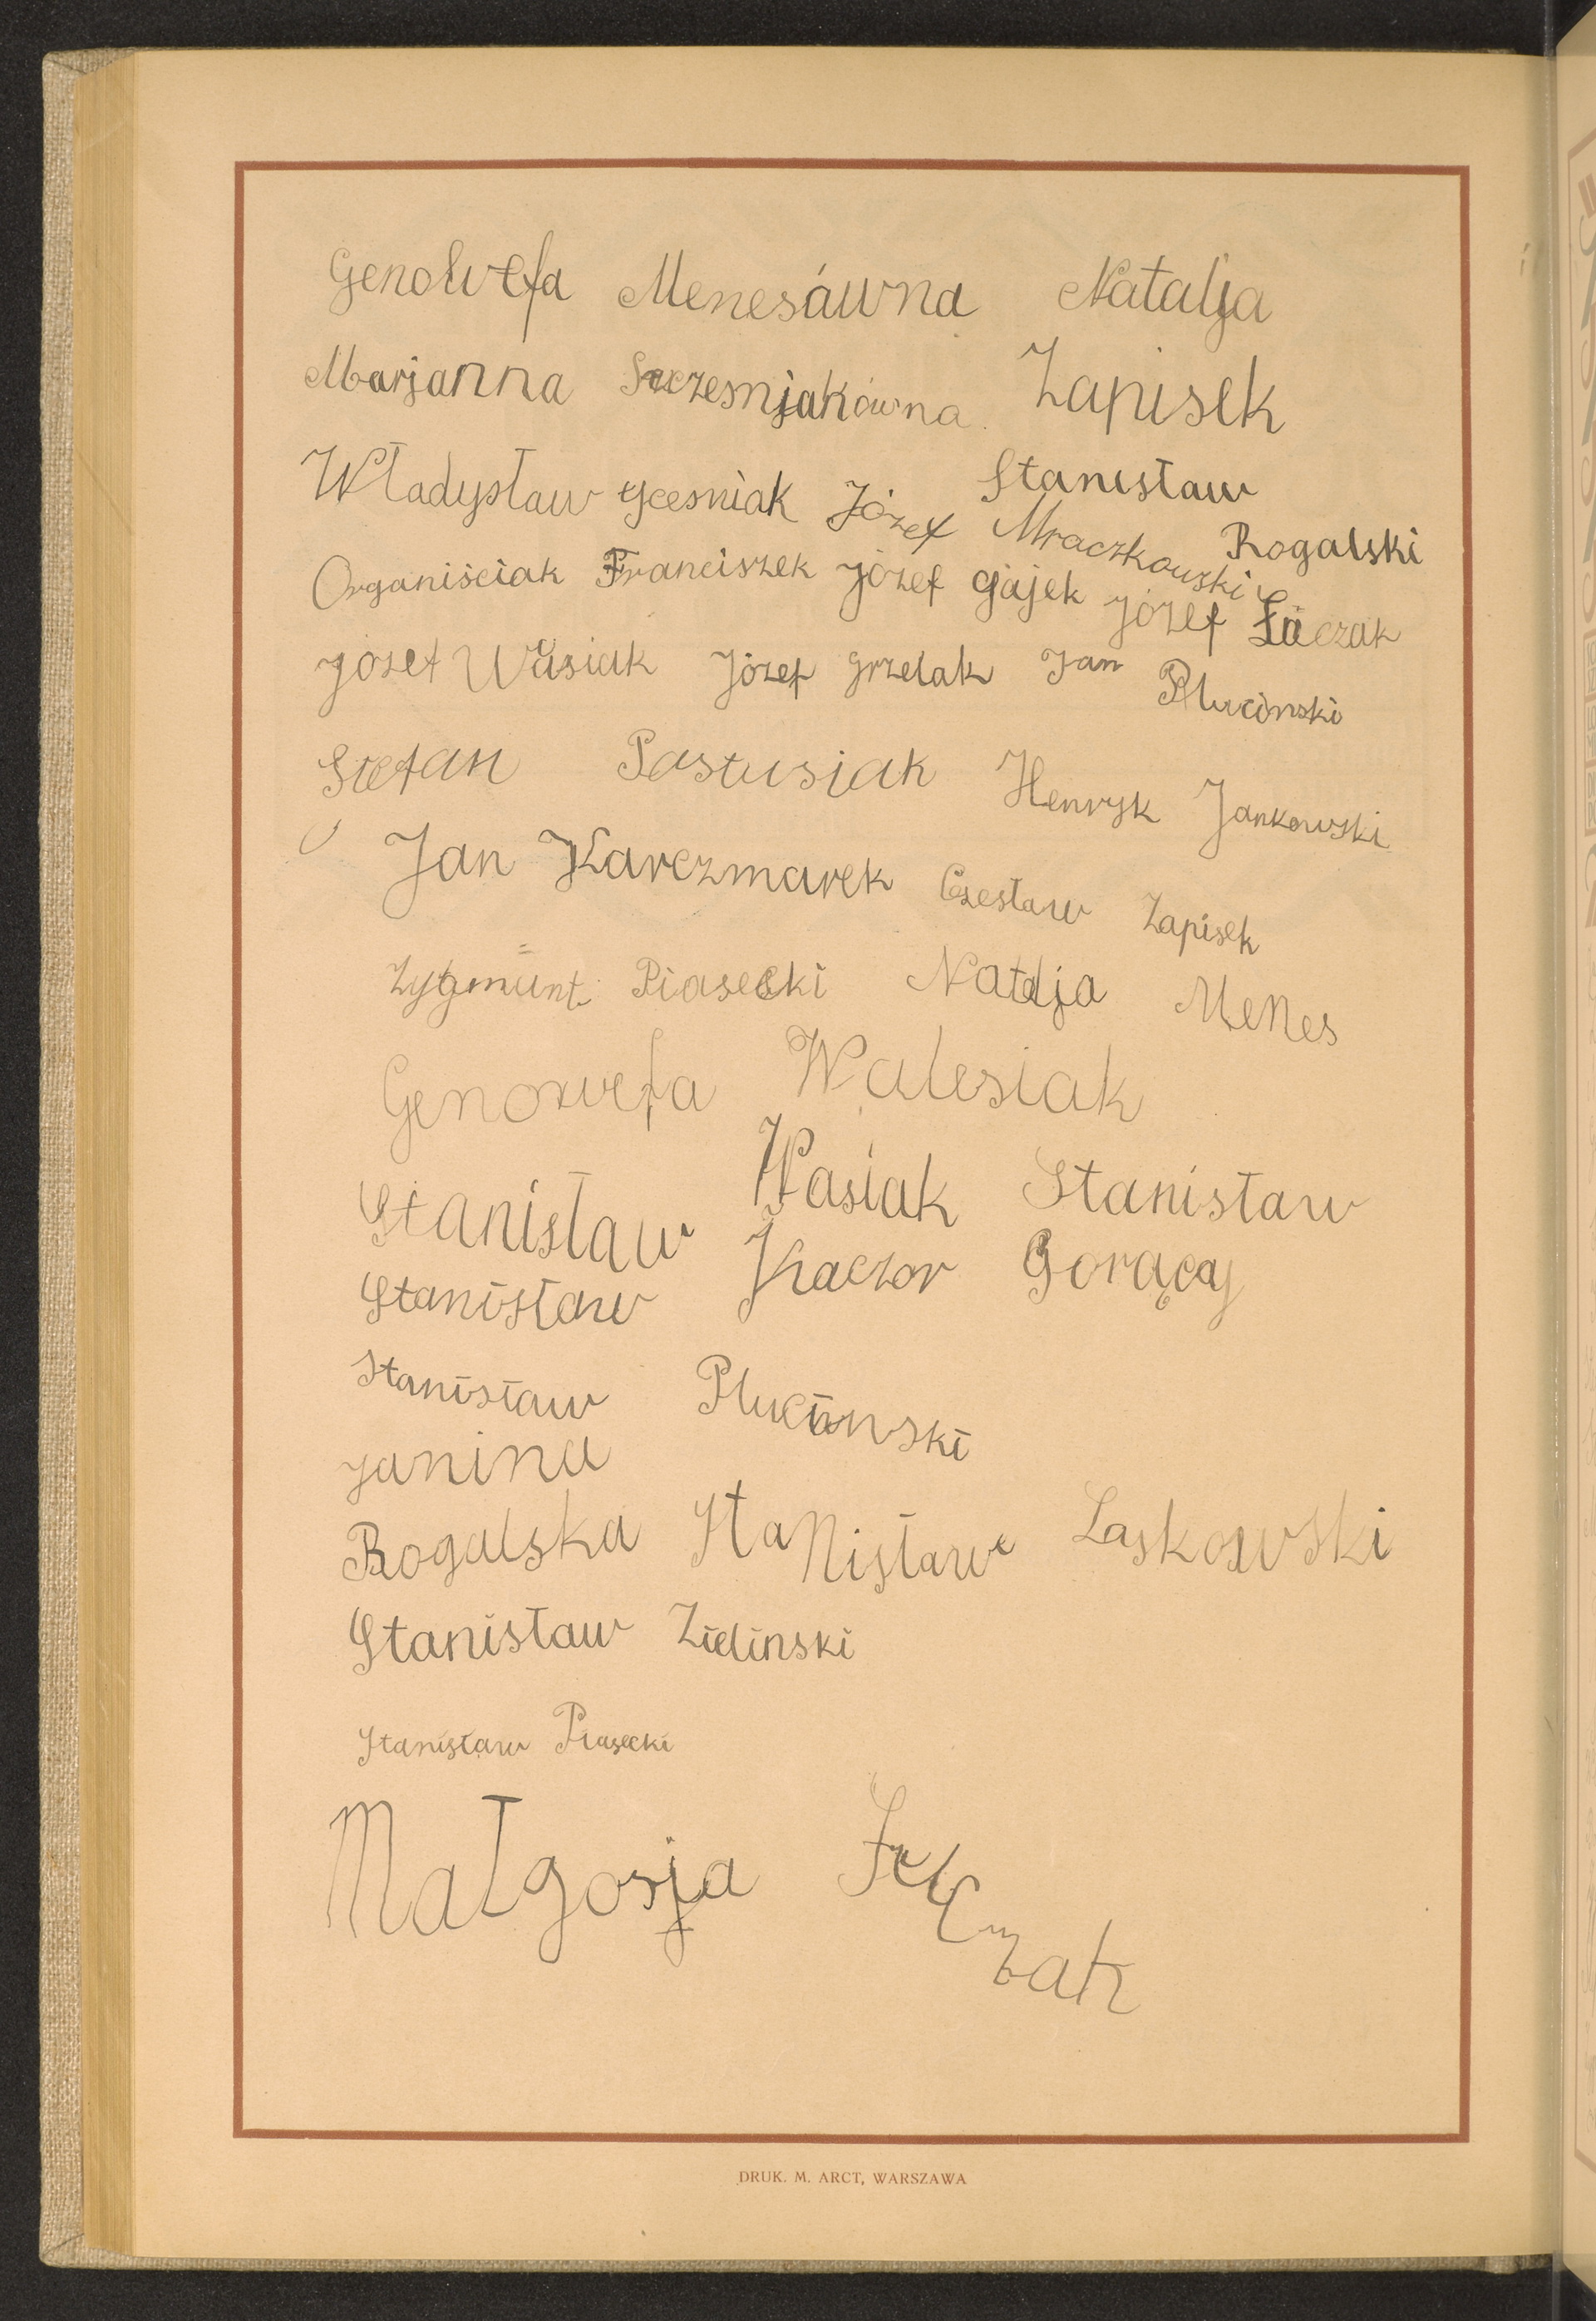 Genowefa Menesáwna Natalja
Marjanna Szczesnjakówna. Zapisek
Władysław Józef Stanisław
Mraczkowski Rogalski
Organiściak Franciszek Józef Gajek Józef Łaczak
Józef Wasiak Józef Grzelak Jan Plucinski
Stefan Pastusiak Henryk Jankowski
Jan Karczmarek Czesław Zapisek
Zygmunt Piasecki Natalja Menes
Genowefa Walesiak
Stanisław Wasiak Stanisław
Stanisław Kaczor Gorący
Stanisław Plucinski
Janina
Rogalska Stanisław Laskowski
Stanisław Zielinski
Stanisław Piasecki
Małgosja
DRUK. M. ARCT, WARSZAWA